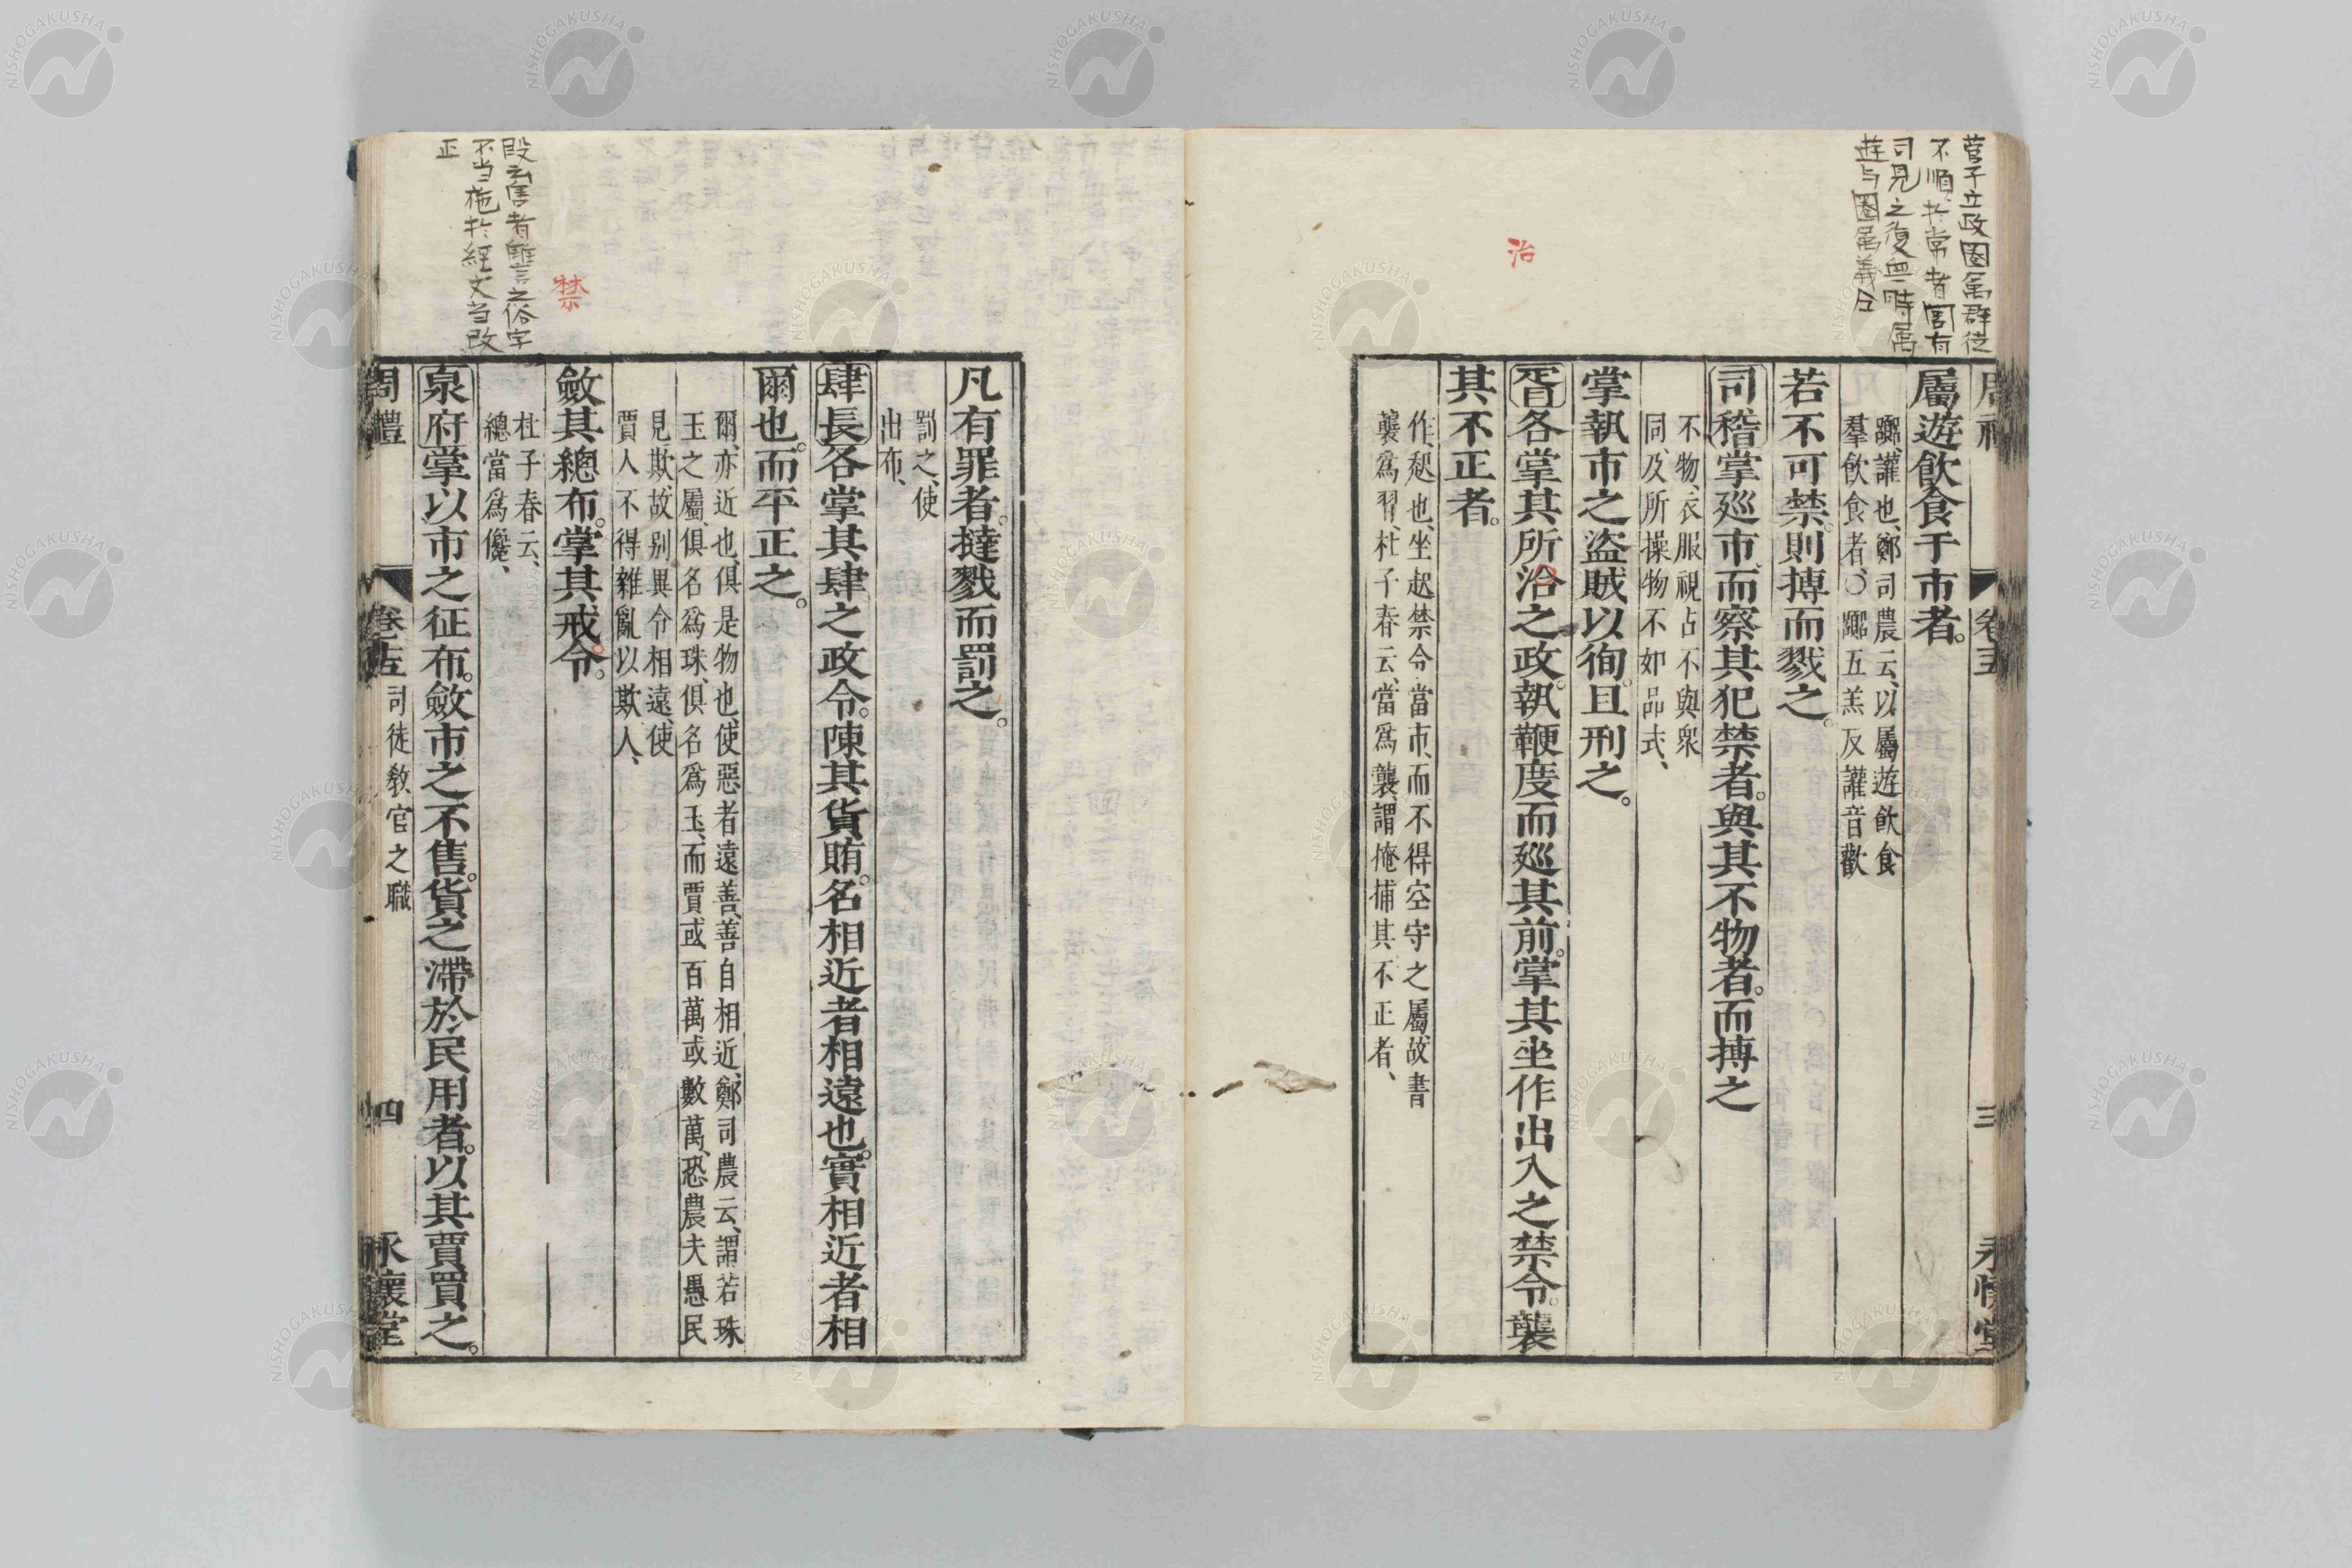 管子立政圈属群徒
不順於常者閭有
司見之復無時属
遊与圈属義仝
治
周禮 卷五 三 永懷堂
屬遊飲食于市者。
躑讙也、鄭司農云、以屬遊飲食
羣飲食者、〇躑五羔反讙音歡
若不可禁。則搏而戮之。
司稽掌廵市。而察其犯禁者。與其不物者。而搏之
不物、衣服視占不與衆
同、及所操物不如品式、
掌執市之盜賊以徇。且刑之。
胥各掌其所治之政。執鞭度而廵其前。掌其坐作出入之禁令。襲
其不正者。
作、起也、坐起禁令、當市、而不得空守之屬、故書
襲爲習、杜子春云、當爲襲、謂掩捕其不正者、
段云售者讎言之俗字
不当施於經文当改
正
禁
凡有罪者。撻戮而罰之。
罰之、使
出布、
肆長各掌其肆之政令。陳其貨賄。名相近者相遠也。實相近者相
爾也。而平正之。
爾、亦近也、俱是物也、使惡者遠善、善自相近、鄭司農云、謂若珠
玉之屬、俱名爲珠、俱名爲玉、而賈或百萬或數萬、恐農夫愚民
見欺、故別異令相遠、使
賈人不得雜亂以欺人、
斂其總布。掌其戒令。
杜子春云、
總當爲儳、
泉府掌以市之征布。斂市之不售。貨之滯於民用者。以其賈買之。
周禮 卷十五 司徒敎官之職 四 永懷堂